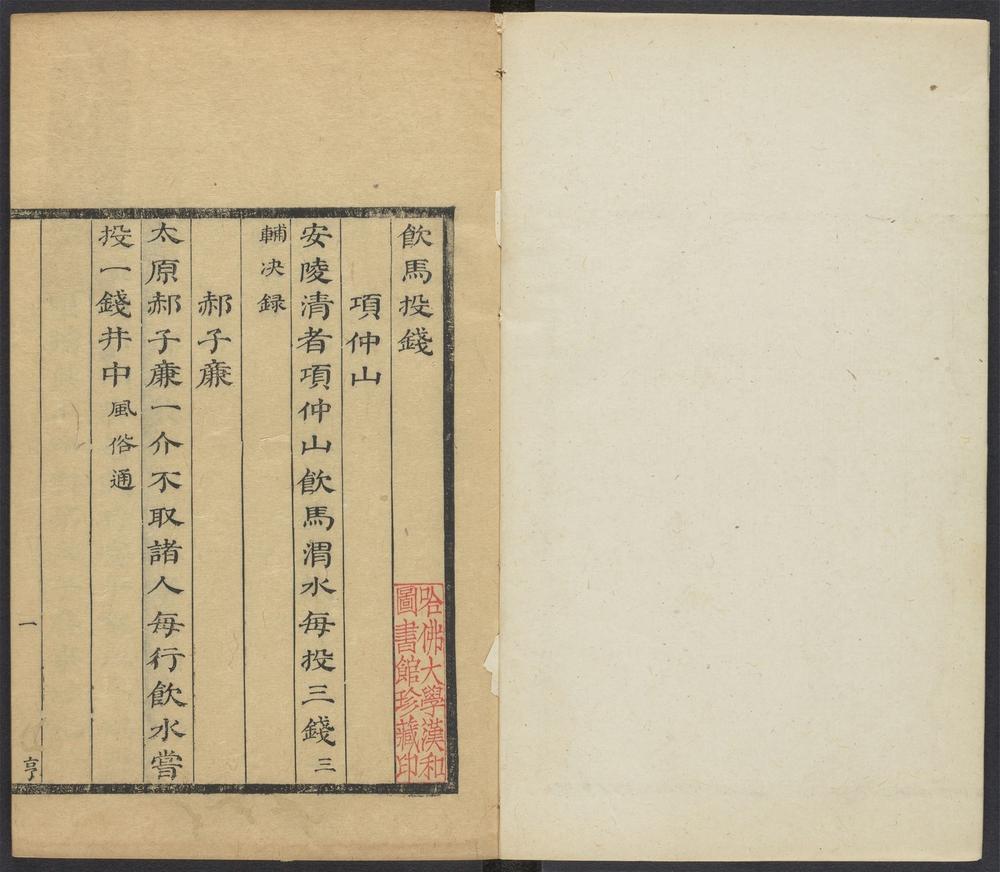 飲馬投錢
項仲山
安陵清者項仲山飲馬渭水每投三錢三
輔決録
郝子廉
太原郝子廉一介不取諸人每行飲水嘗
投一錢井中風俗通
一
亨
哈佛大學漢和
圖書館珍藏印